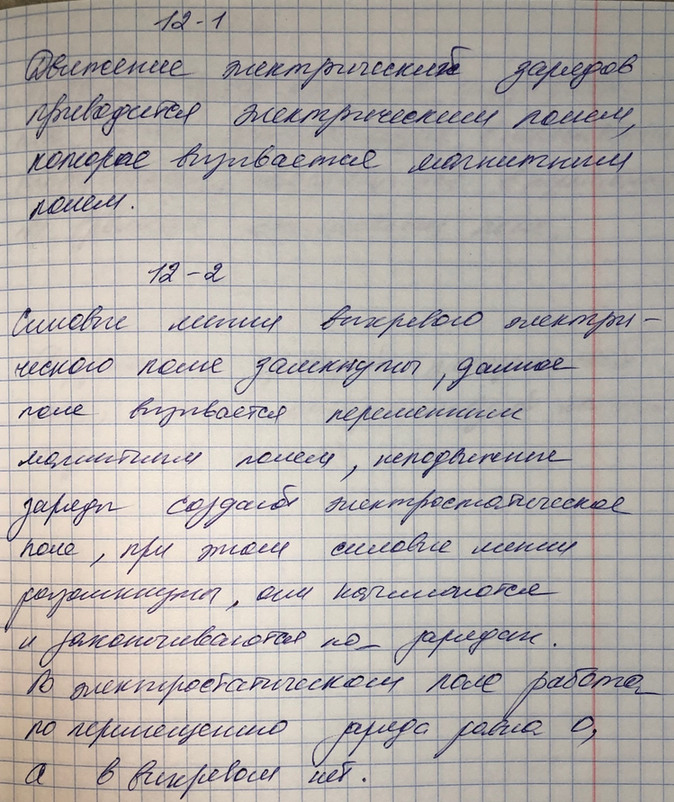 12-1
Движение электрический зарядов
приводится электрическим полем,
которое вызывается магнитным
полем.
12-2
Силовые линии вихревого электри-
ческого поля замкнуты, данное
поле вызывается переменным
магнитным полем, неподвижные
заряды создают электростатическое
поле, при этом силовые линии
разомкнуты, они начинаются
и заканчиваются на зарядах.
В электростатическом поле работа
по перемещению заряда равна 0,
а в вихревом нет.